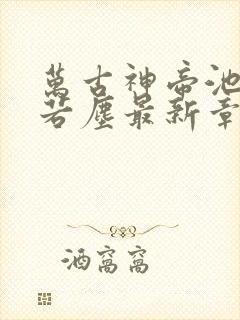 萬古神帝池
若塵最新章
酒窩窩